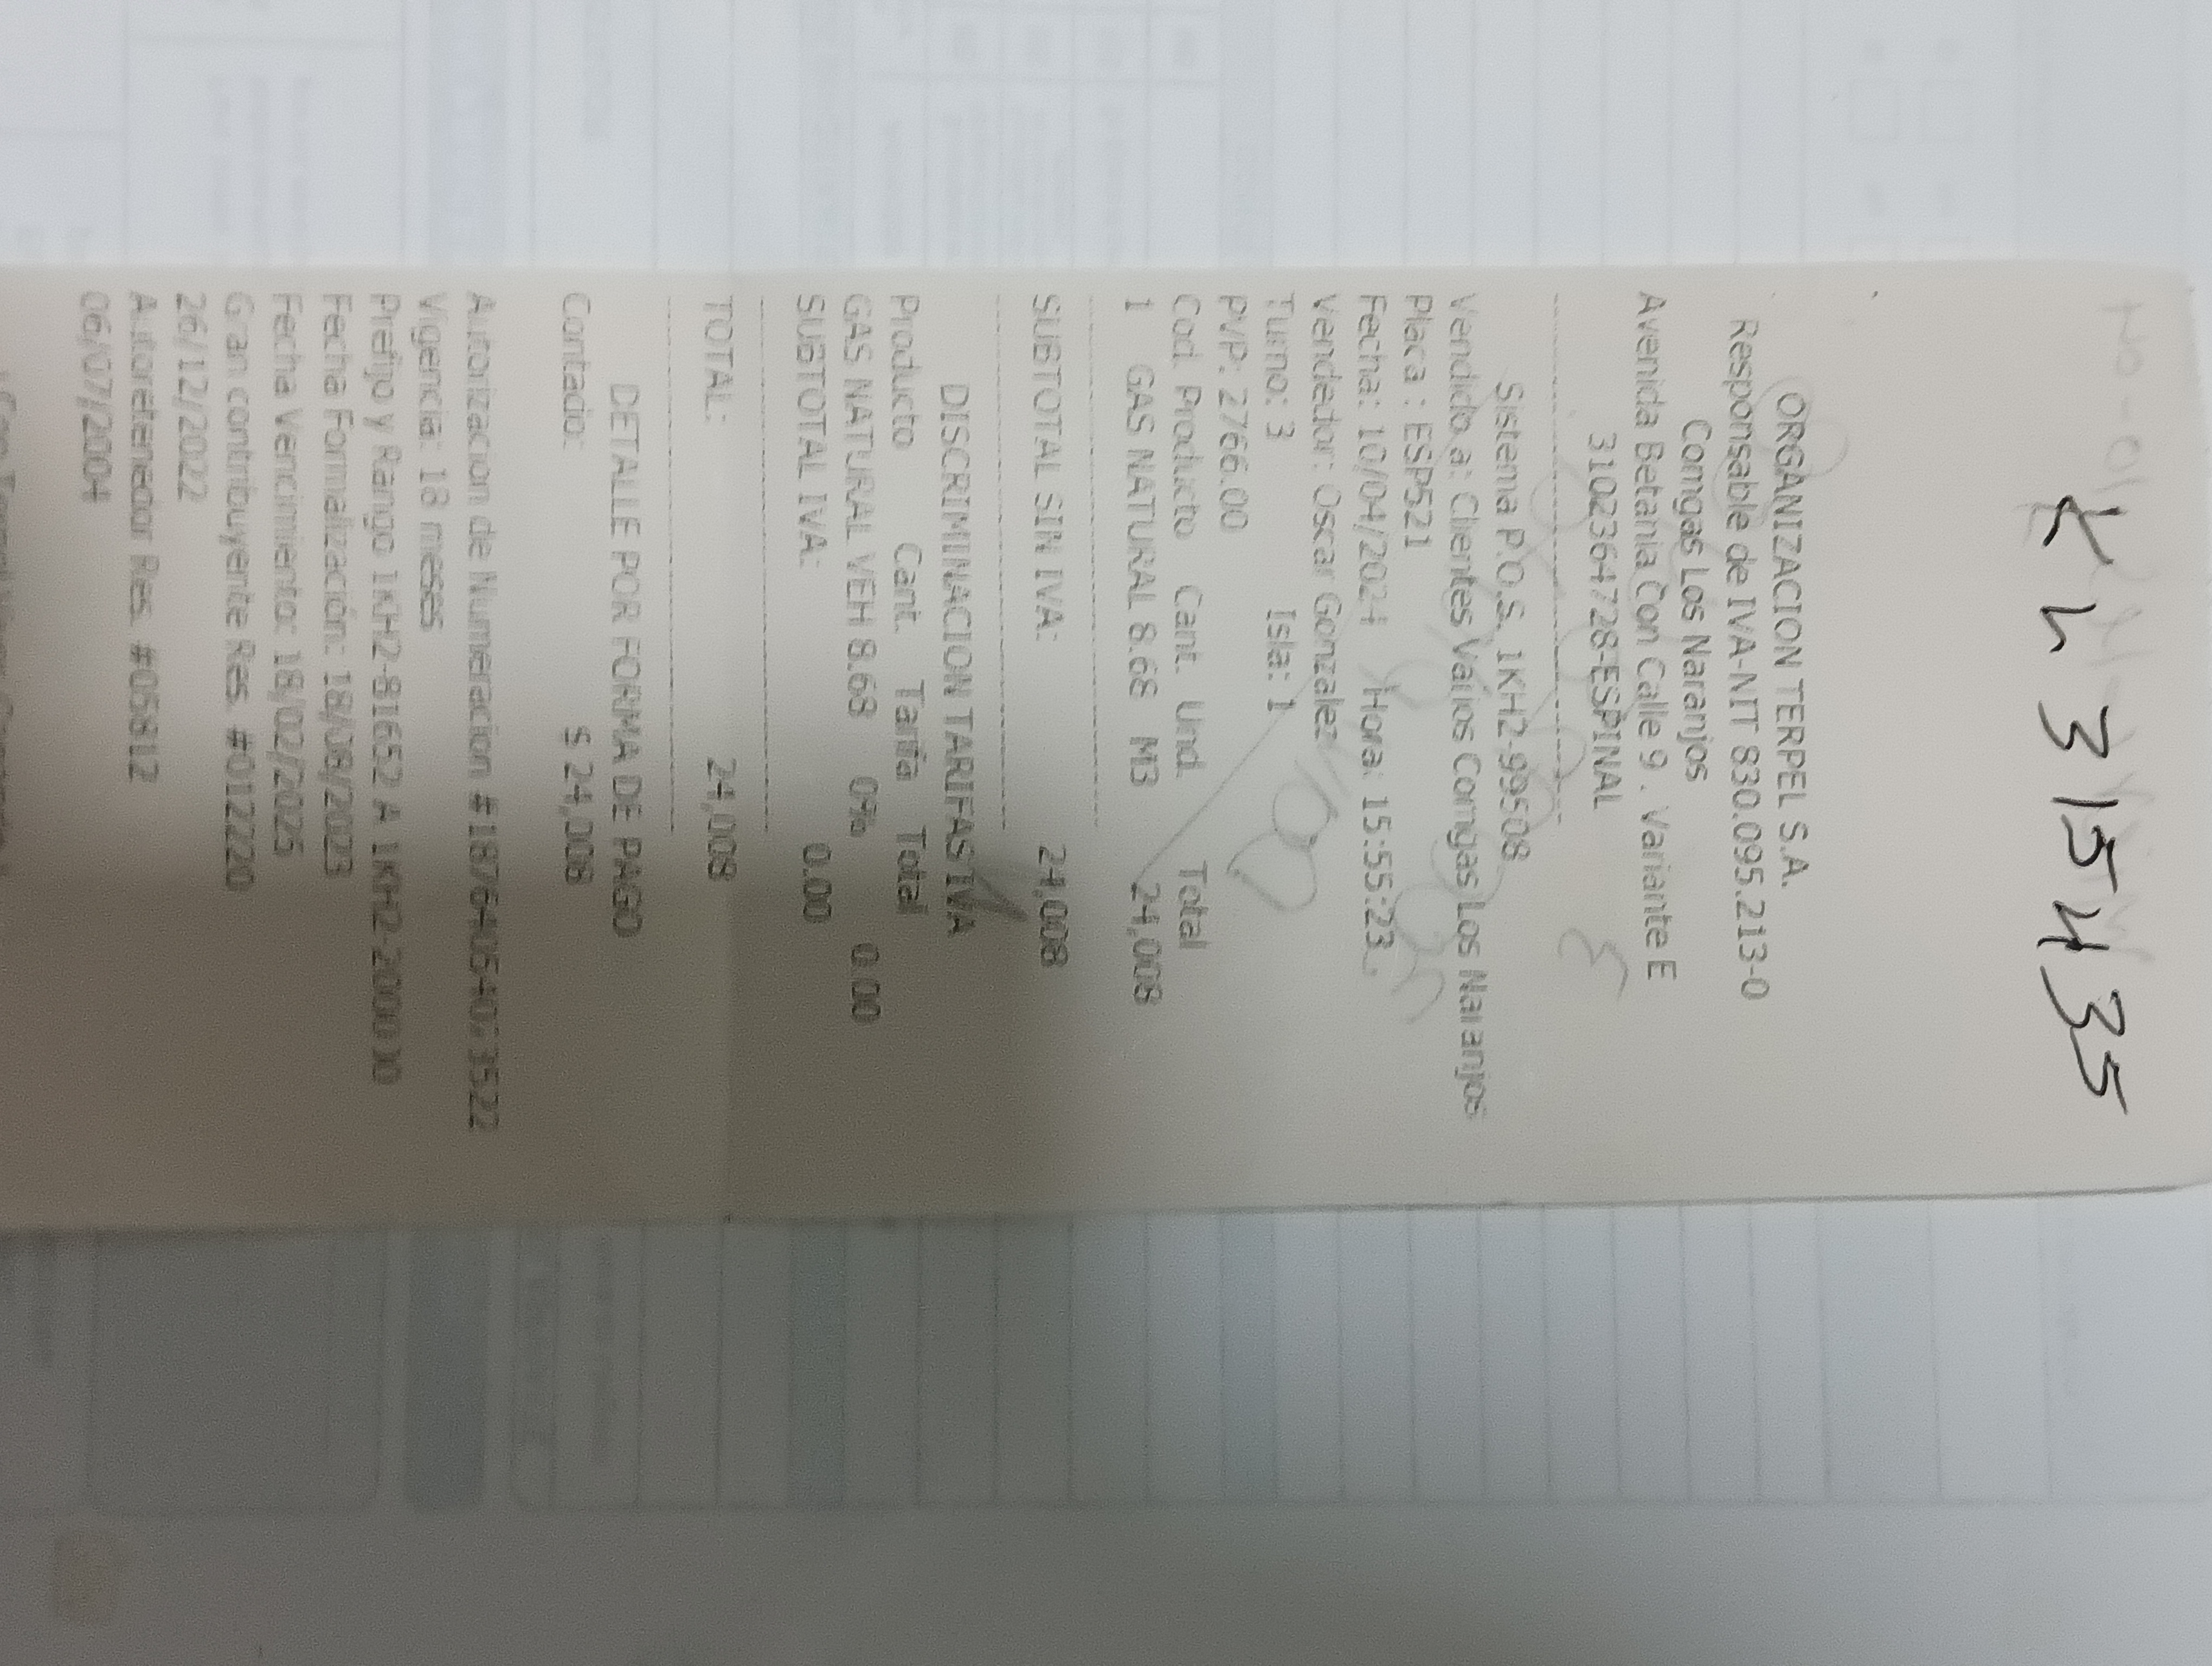 K h 315435
ORGANIZACION TERPEL S.A.
Responsable de IVA-NIT 830.095.213-0
Comgas Los Naranjos
Avenida Betania Con Calle 9 . Variante E
3102364728-ESPINAL
3
Sistema P.O.S. 1KH2-99508
Vendido a: Clientes Varios Comgas Los Naranjos
Placa : ESP521
Fecha: 10/04/2024 Hora: 15:55:23
Vendedor: Oscar Gonzalez
Turno: 3 Isla: 1
PVP: 2766.00
Cod. Producto Cant. Und. Total
1 GAS NATURAL 8.68 M3 24,008
SUBTOTAL SIN IVA: 24,008
DISCRIMINACION TARIFAS IVA
Producto Cant. Tarifa Total
GAS NATURAL VEH 8.68 0% 0.00
SUBTOTAL IVA: 0.00
TOTAL: 24,008
DETALLE POR FORMA DE PAGO
Contado: $ 24,008
Autorizacion de Numeracion
Vigencia: 18 meses
Prefijo y Rango 1KH2-81652 A 1KH2-200000
Fecha Formalización: 18/08/2023
Fecha Vencimiento: 18/02/2025
Gran contribuyente Res. #012220
26/12/2022
Autoretenedor Res. #05812
06/07/2004